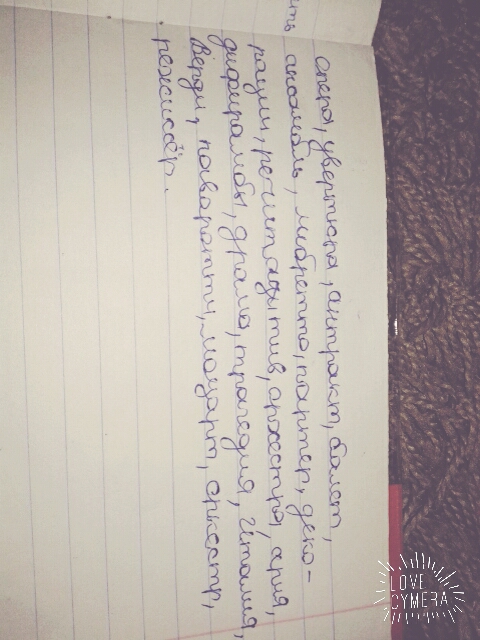 сть
опера, увертюра, антракт, балет,
ансамбль, либретто, партер, деко-
рации, речитацитив, оркестра, ария,
дифирамбы, драма, трагедия, Италия,
Верди, Паваротти, моцарт, оркестр,
режиссёр.
LOVE
CYMERA